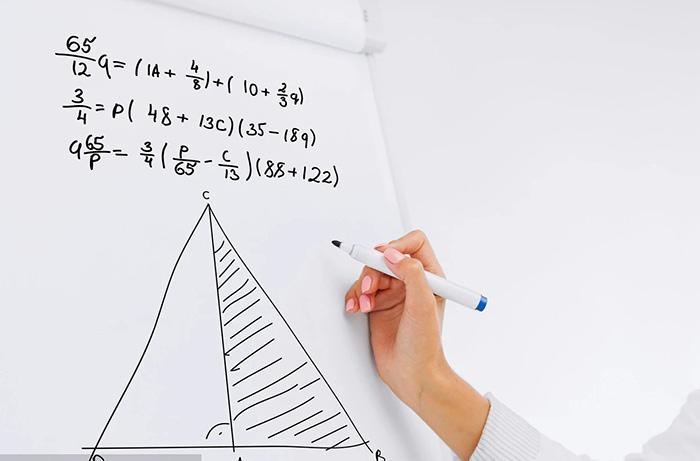 65/12 q = (1A + 4/8) + (10 + 2/3 q)
3/4 = P(48 + 13C)(35 - 18q)
q 65/P = 3/4 (P/65 - C/13)(88 + 122)
C
A
B